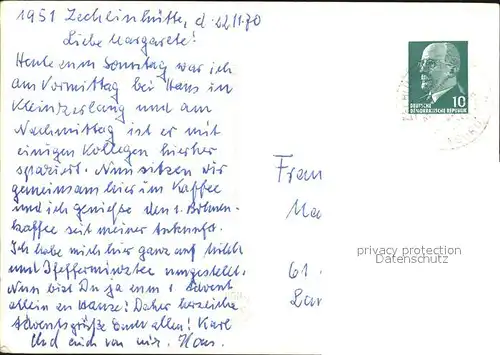 1951 Zechlinhütte, d. 22.11.70
Liebe Margarete!
Heute zum Sonntag war ich
am Vormittag bei Hans in
Kleinzerlang und am
Nachmittag ist er mit
einigen Kollegen hierher
spaziert. Nun sitzen wir
gemeinsam hier im Kaffee
und ich genieße den 1. Bohnen-
kaffee seit meiner Ankunft.
Ich habe mich hier ganz auf Milch
und Pfefferminztee umgestellt.
Nun bist Du ja zum 1. Advent
allein zu Hause! Daher herzliche
Adventsgrüße Euch allen! Karl
Und auch von mir. Hans.
DEUTSCHE
DEMOKRATISCHE REPUBLIK
10
Frau
Ma
61
Lar
privacy protection
Datenschutz